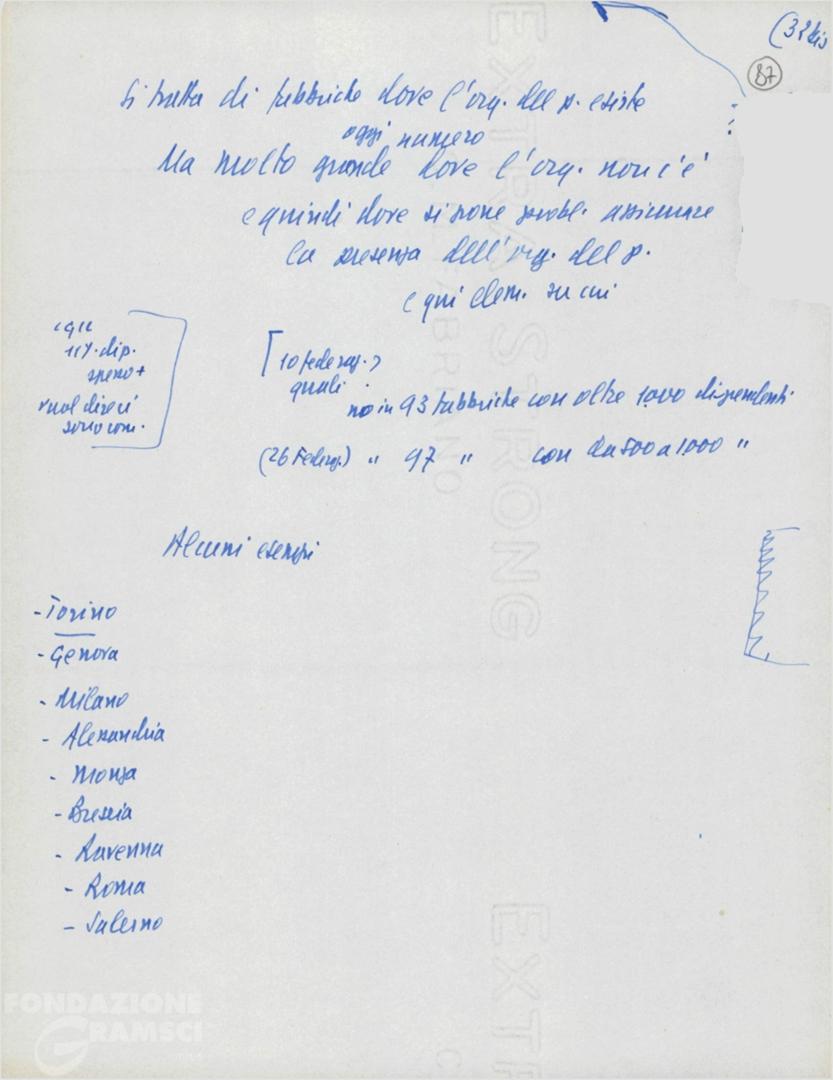 (32 bis
87
Si tratta di fabbriche dove l'org. del p. esiste
oggi numero
Ma molto grande dove l'org. non c'è
e quindi dove si pone probl. assicurare
la presenza dell'org. del p.
e qui elem. su cui
dip.
speso +
vuol dire ci
sono com.
[10 federaz.)
quali
no in 93 fabbriche con oltre 1000 dipendenti
(26 Federaz.) " 97 " con da 500 a 1000 "
Alcuni esempi
- Torino
- Genova
- Milano
- Alessandria
- Monza
- Brescia
- Ravenna
- Roma
- Salerno
EXTRA STRONG
FABRIANO
EXT
FONDAZIONE
GRAMSCI